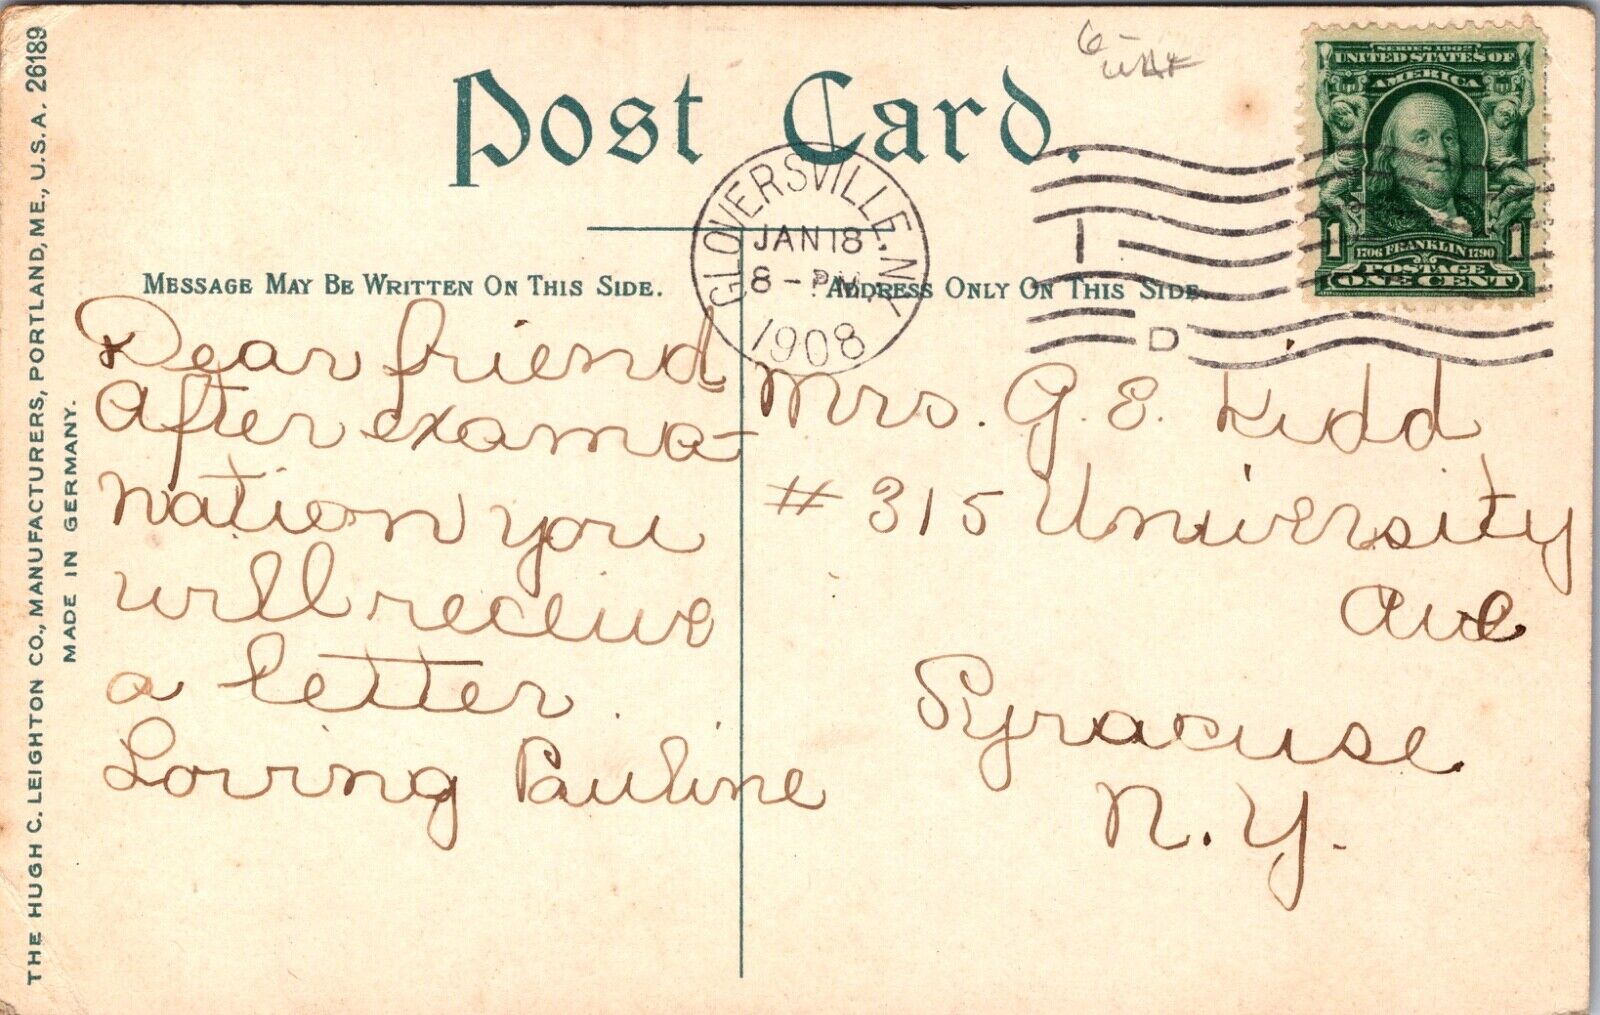 Post Card.
SERIES 1902
UNITED STATES OF
AMERICA
1 1
1706 FRANKLIN 1790
POSTAGE
ONE CENT
GLOVERSVILLE, N.Y.
JAN 18
8 - PM
1908
D
MESSAGE MAY BE WRITTEN ON THIS SIDE.
ADDRESS ONLY ON THIS SIDE.
Dear friend
After exama-
nation you
will receive
a letter.
Loving Pauline
Mrs. G. E. Kidd
# 315 University
Ave
Syracuse
N.Y.
THE HUGH C. LEIGHTON CO., MANUFACTURERS, PORTLAND, ME., U.S.A. 26189
MADE IN GERMANY.